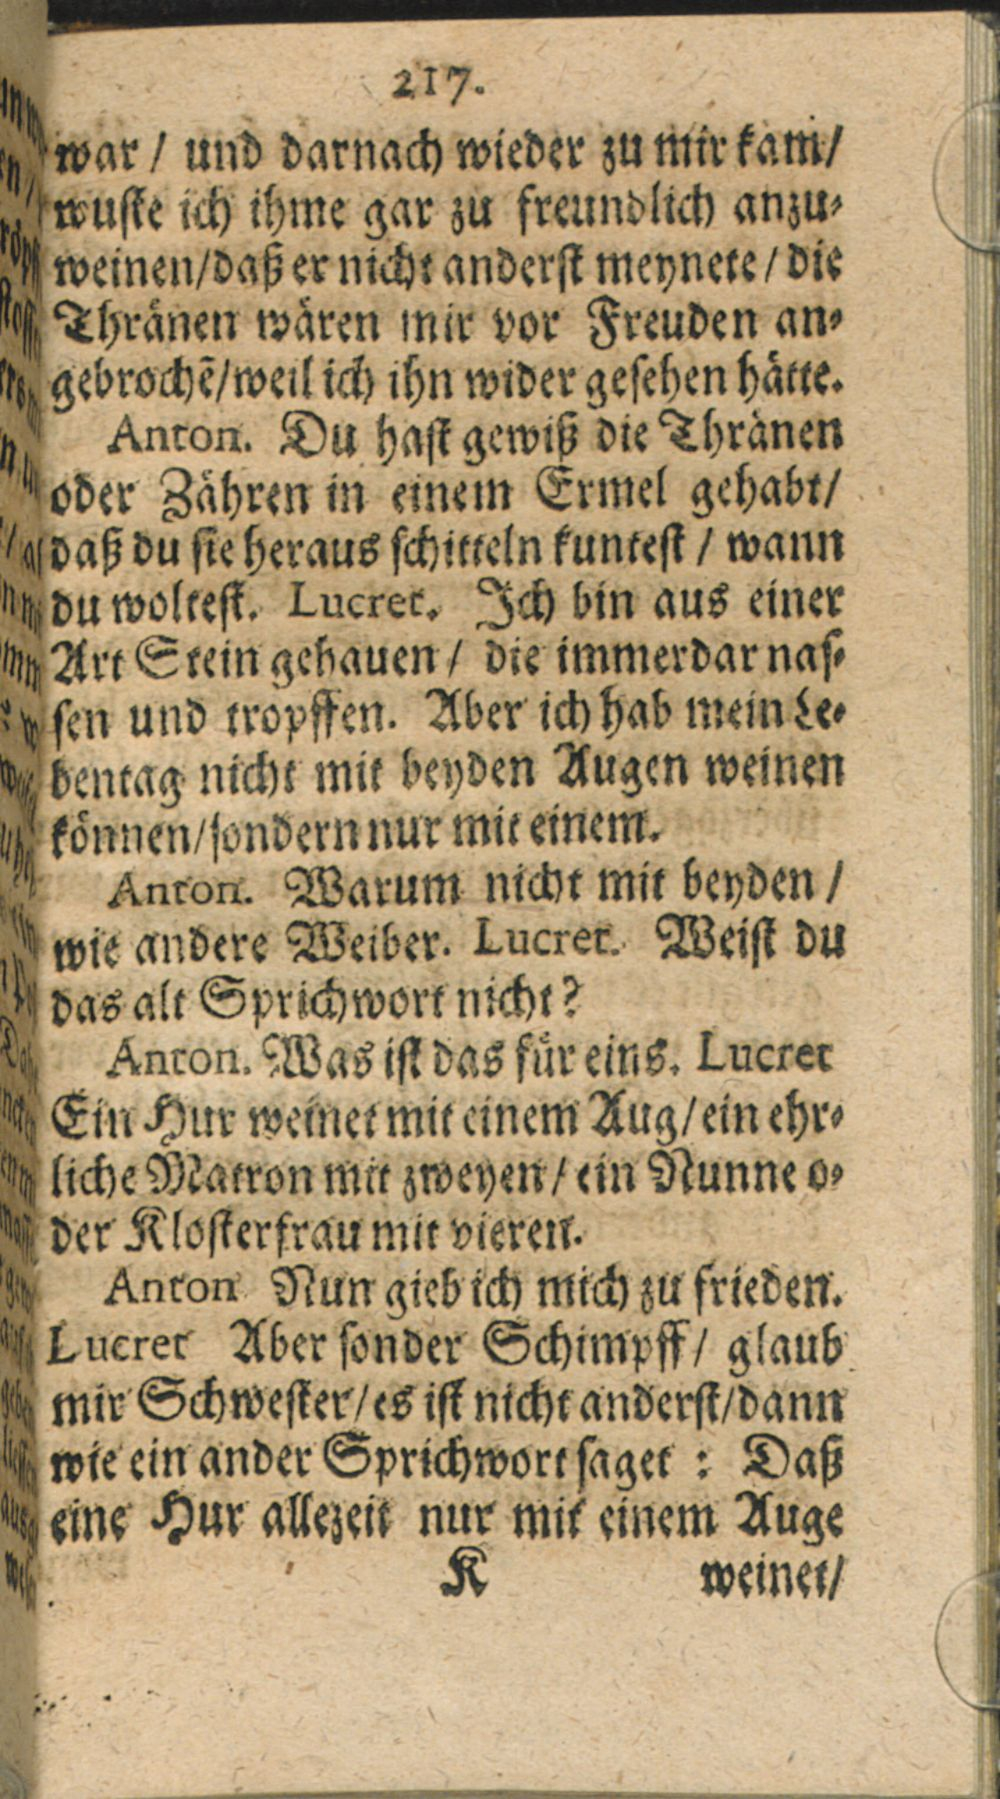 217.
war / und darnach wieder zu mir kam/
wuste ich ihme gar zu freundlich anzu-
weinen/daß er nicht anderst meynete / die
Thränen wären mir vor Freuden an-
gebrochē/weil ich ihn wider gesehen hätte.
Anton. Du hast gewiß die Thränen
oder Zähren in einem Ermel gehabt/
daß du sie heraus schitteln kuntest / wann
du woltest. Lucret. Ich bin aus einer
Art Stein gehauen / die immerdar nas-
sen und tropffen. Aber ich hab mein Le-
bentag nicht mit beyden Augen weinen
können/sondern nur mit einem.
Anton. Warum nicht mit beyden /
wie andere Weiber. Lucret. Weist du
das alt Sprichwort nicht?
Anton. Was ist das für eins. Lucret
Ein Hur weinet mit einem Aug/ein ehr-
liche Matron mit zweyen / ein Nunne o-
der Klosterfrau mit vieren.
Anton Nun gieb ich mich zu frieden.
Lucret Aber sonder Schimpff / glaub
mir Schwester/es ist nicht anderst/dann
wie ein ander Sprichwort saget : Daß
eine Hur allezeit nur mit einem Auge
K weinet/